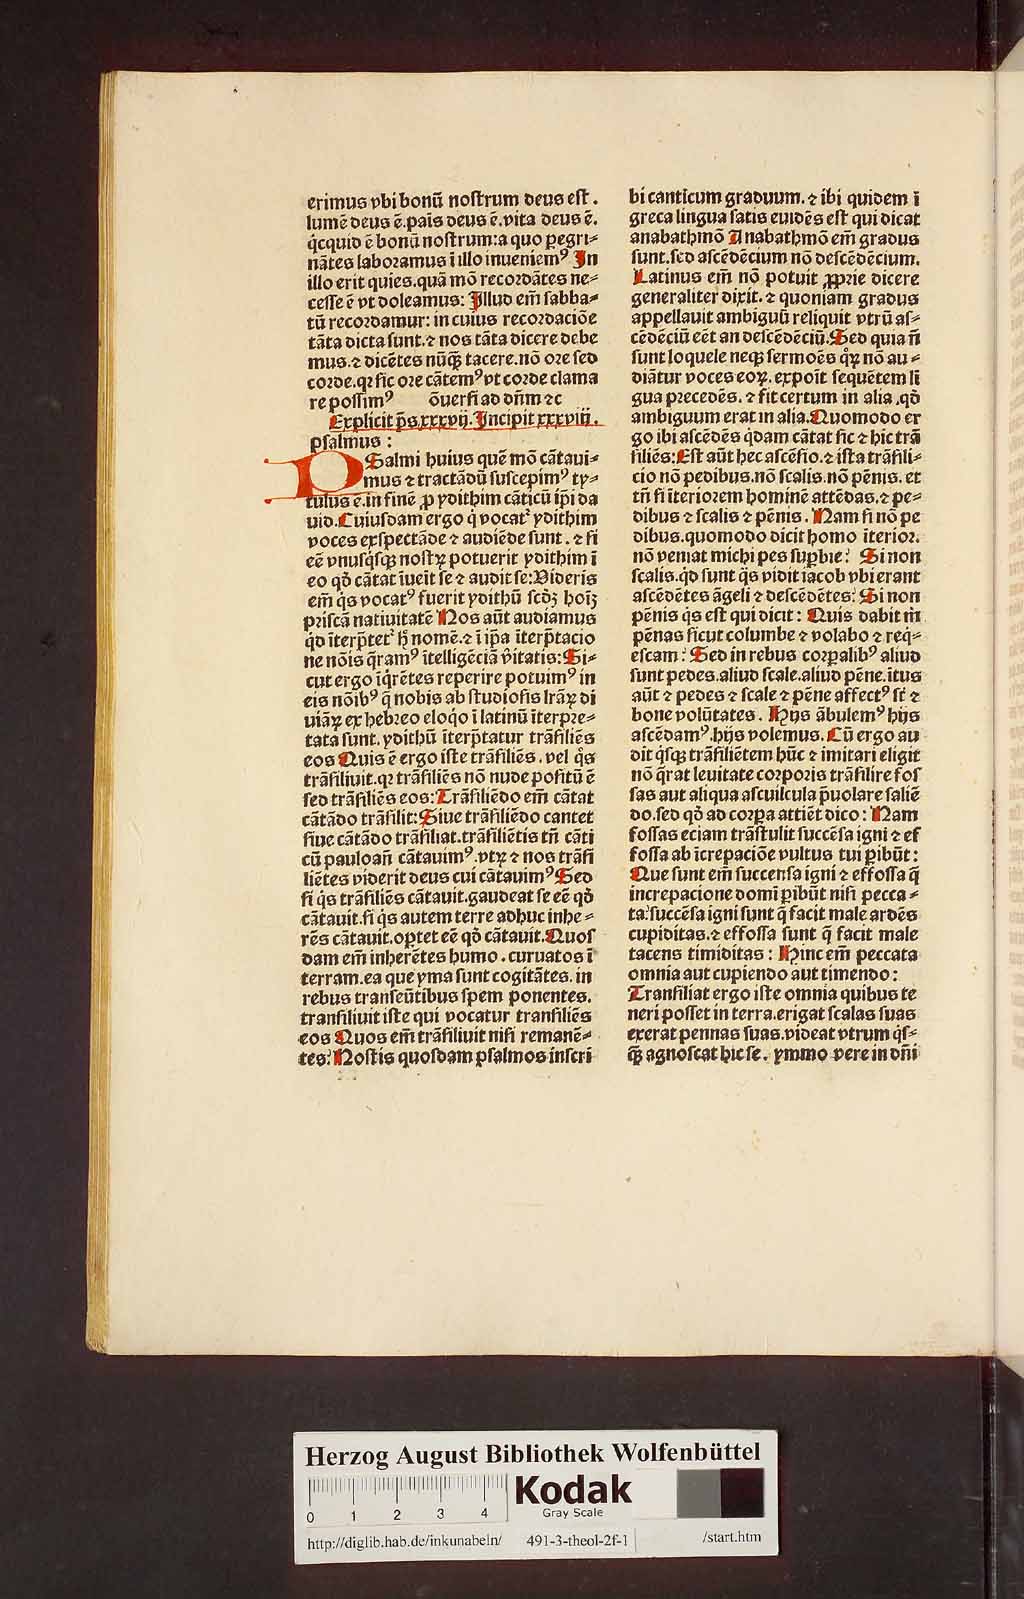 erimus vbi bonū nostrum deus est.
lumē deus ē.pais deus ē.vita deus ē.
q̇cquid ē bonū nostrum:a quo ꝑegri-
nātes laboramus ī illo inueniemꝰ In
illo erit quies.quā mō recordātes ne-
cesse ē vt doleamus: Illud em̄ sabba-
tū recordamur: in cuius recordaciōe
tāta dicta sunt.⁊ nos tāta dicere debe
mus.⁊ dicētes nūq̄ꝫ tacere.nō ore sed
corde.qꝛ sic ore cātemꝰ vt corde clama
re possimꝰ ōuersi ad dn̄m ⁊c
Explicit p̄s.xxxvij. Incipit xxxviij.
psalmus :
PSalmi huius quē mō cātaui-
mus ⁊ tractādū suscepimꝰ ty-
tulus ē.in finē ꝓ ydithim cāticū ip̄i da
uid.Cuiusdam ergo q̇ vocatᷣ ydithim
voces exspectāde ⁊ audiēde sunt.⁊ si
eē vnusq̇sqꝫ nostꝝ potuerit ydithim ī
eo qd̄ cātat īueīt se ⁊ audit se:Videris
em̄ q̇s vocatꝰ fuerit ydithū scdꝫ hoīꝫ
priscā natiuitatē Nos aūt audiamus
q̇d īterp̄tetᷣ h̄ nomē.⁊ ī ip̄a īterp̄tacio
ne nōis q̄ramꝰ ītelligēciā v̄itatis:Si-
cut ergo īq̇rētes reperire potuimꝰ in
eis nōibꝰ q̄ nobis ab studiosis lrāꝝ di
uiāꝝ ex hebreo eloq̇o ī latinū īterpre-
tata sunt.ydithū īterp̄tatur trāsiliēs
eos Quis ē ergo iste trāsiliēs.vel q̇s
trāsiliuit.qꝛ trāsiliēs nō nude positū ē
sed trāsiliēs eos:Trāsiliēdo em̄ cātat
cātādo trāsilit:Siue trāsiliēdo cantet
siue cātādo trāsiliat.trāsiliētis tn̄ cāti
cū pauloan̄ cātauimꝰ.vtꝝ ⁊ nos trāsi
liētes viderit deus cui cātauimꝰ Sed
si q̇s trāsiliēs cātauit.gaudeat se eē qd̄
cātauit.si q̇s autem terre adhuc inhe-
rēs cātauit.optet eē qd̄ cātauit.Quos
dam em̄ inherētes humo.curuatos ī
terram.ea que yma sunt cogitātes.in
rebus transeūtibus spem ponentes.
transiliuit iste qui vocatur transiliēs
eos Quos em̄ trāsiliuit nisi remanē-
tes: Nostis quosdam psalmos inscri
bi canticum graduum.⁊ ibi quidem ī
greca lingua satis euidēs est qui dicat
anabathmō Anabathmō em̄ gradus
sunt.sed ascēdēcium nō descēdēcium.
Latinus em̄ nō potuit ꝓprie dicere
generaliter dixit.⁊ quoniam gradus
appellauit ambiguū reliquit vtrū as-
cēdēciū eēt an descēdēciū.Sed quia n̄
sunt loquele neqꝫ sermoēs qꝝ nō au-
diātur voces eoꝝ.expoīt sequētem li
gua precedēs.⁊ fit certum in alia.qd̄
ambiguum erat in alia.Quomodo er
go ibi ascēdēs q̇dam cātat sic ⁊ hic trā
siliēs:Est aūt hec ascēsio.⁊ ista trāsili-
cio nō pedibus.nō scalis.nō pēnis.et
tn̄ si īteriorem hominē attēdas.⁊ pe-
dibus ⁊ scalis ⁊ pēnis. Nam si nō pe
dibus.quomodo dicit homo īterior.
nō veniat michi pes suꝑbie: Si non
scalis.q̇d sunt q̄s vidit iacob vbi erant
ascēdētes āgeli ⁊ descēdētes: Si non
pēnis q̇s est qui dicit: Quis dabit m̄
pēnas sicut columbe ⁊ volabo ⁊ req̇-
escam: Sed in rebus corꝑalibꝰ aliud
sunt pedes.aliud scale.aliud pēne.ītus
aūt ⁊ pedes ⁊ scale ⁊ pēne affectꝰ sūt ⁊
bone volūtates. Hijs ābulemꝰ hijs
ascēdamꝰ.hijs volemus.Cū ergo au
dit q̇sqꝫ trāsiliētem hūc ⁊ imitari eligit
nō q̄rat leuitate corporis trāsilire fos
sas aut aliqua ascuilcula p̄uolare saliē
do.sed qd̄ ad corpꝰa attiēt dico: Nam
fossas eciam trāstulit succēsa igni ⁊ ef
fossa ab īcrepaciōe vultus tui ꝑibūt:
Que sunt em̄ succensa igni ⁊ effossa q̄
increpacione domī ꝑibūt nisi pecca-
ta:succēsa igni sunt q̄ facit male ardēs
cupiditas.⁊ effossa sunt q̄ facit male
tacens timiditas: Hinc em̄ peccata
omnia aut cupiendo aut timendo:
Transiliat ergo iste omnia quibus te
neri posset in terra.erigat scalas suas
exerat pennas suas.videat vtrum q̇s-
qꝫ agnoscat hic se. ymmo vere in dn̄i
Herzog August Bibliothek Wolfenbüttel
0 1 2 3 4
Kodak
Gray Scale
http://diglib.hab.de/inkunabeln/ 491-3-theol-2f-1 /start.htm